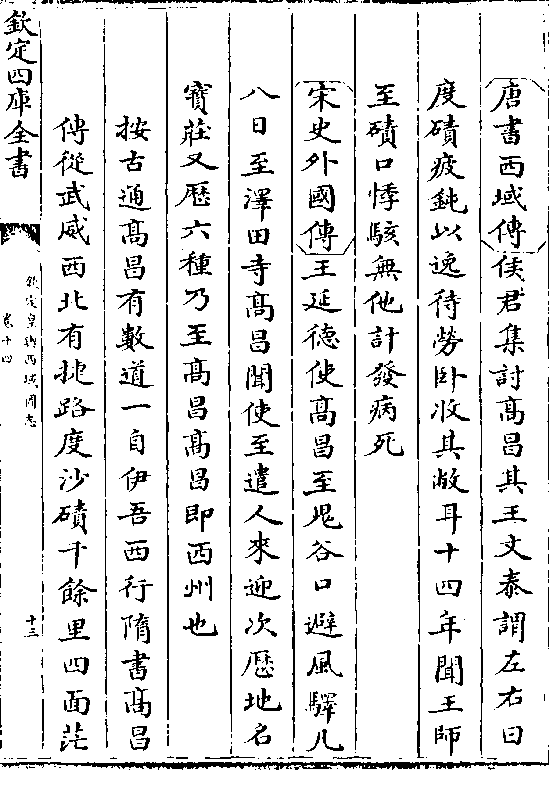 唐書西域傳侯君集討髙昌其王文泰謂左右曰
度磧疲鈍以逸待勞卧收其敝耳十四年聞王師
至磧口悸駭無他計發病死
宋史外國傳王延徳使髙昌至鬼谷口避風驛凡
八日至澤田寺髙昌聞使至遣人來迎次厯地名
寳莊又厯六種乃至髙昌髙昌即西州也
按古通髙昌有數道一自伊吾西行隋書髙昌
傳從武威西北有捷路度沙磧千餘里四面茫
欽定四庫全書
欽定皇輿西域圖志
卷十四
十三